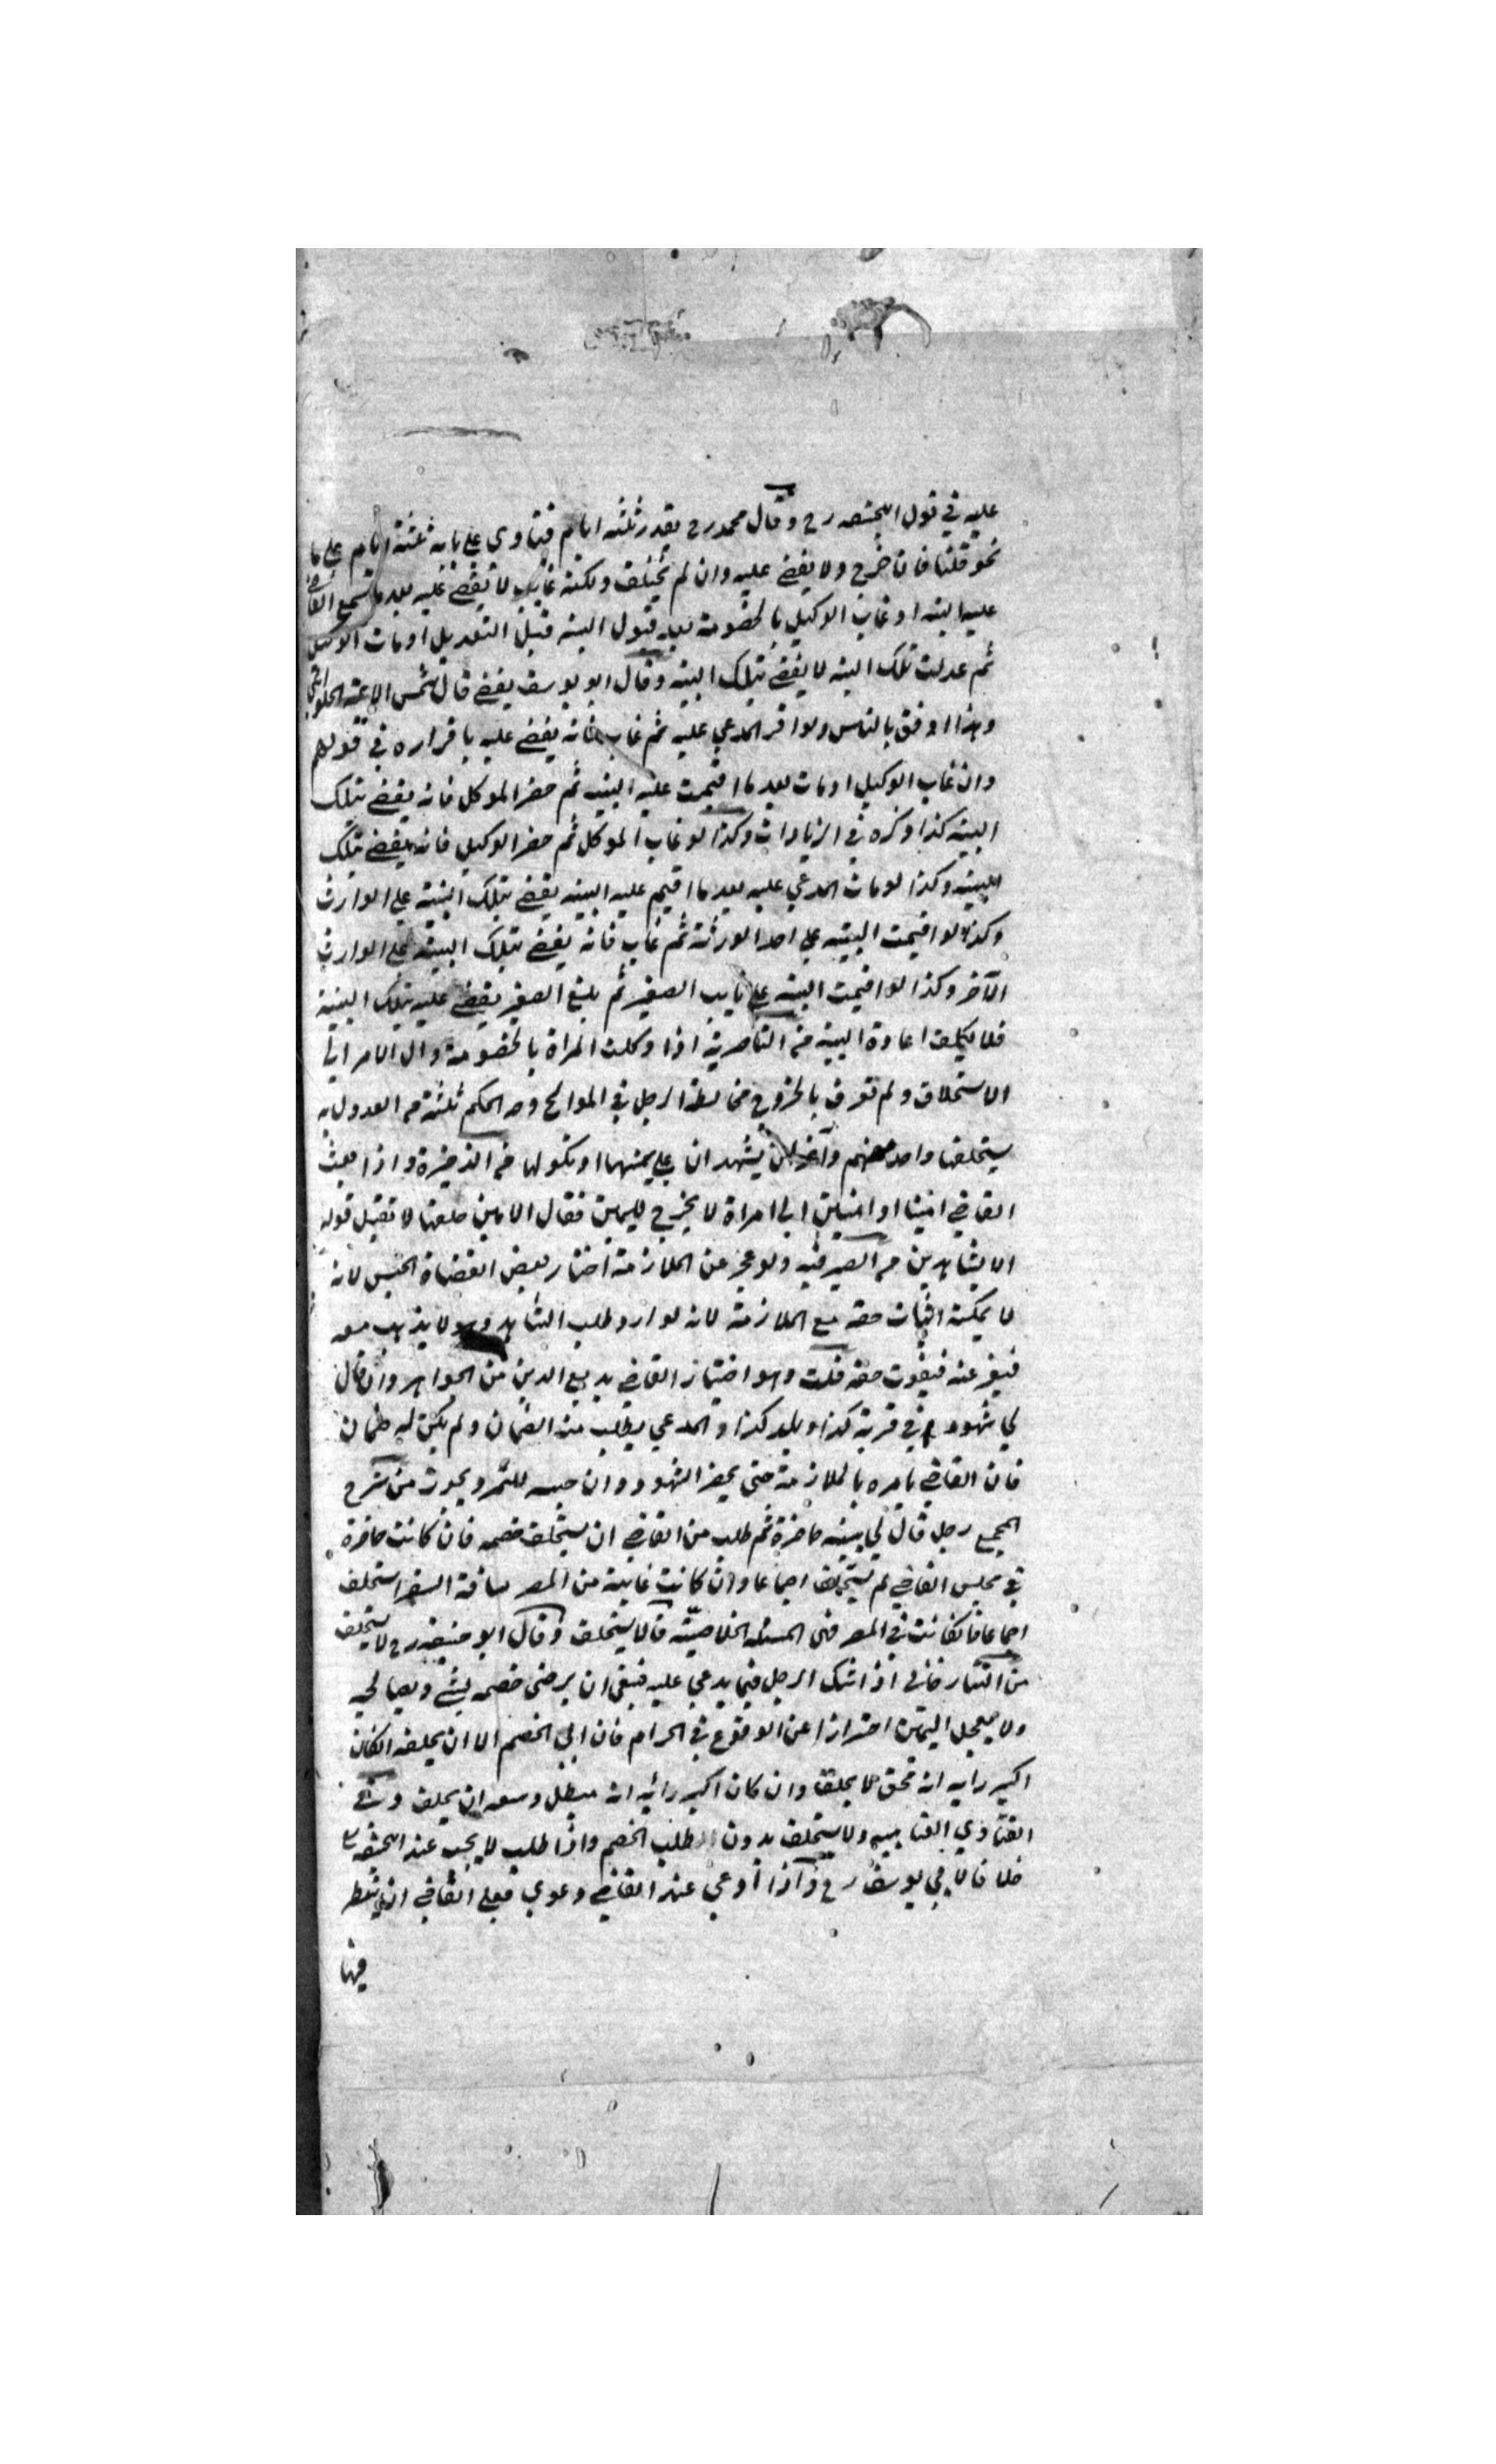 عليه في قول ابيحنيفه رح وقال محمد رح يقدر ثلثه ايام فينادي علي بابه ثلثة ايام علي ما
نحو قلنا فان خرج والا يقضي عليه وان لم يختلف ولكنه غايب لا يقضي عليه بعد ما تسمع القاضي
عليه البينه او غاب الوكيل بالخصومة بعد قبول البينه قبل التعديل او مات الوكيل
ثم عدلت تلك البينه لا يقضي بتلك البينه وقال ابو يوسف يقضي قال شمس الائمه الحلواني
وهذا اوفق بالناس ولو اقر المدعي عليه ثم غاب فانه يقضي عليه باقراره في قولهم
وان غاب الوكيل او مات بعد ما اقيمت عليه البينه ثم حضر الموكل فانه يقضي بتلك
البينه كذا ذكره في الزيادات وكذا لو غاب الموكل ثم حضر الوكيل فانه يقضي بتلك
البينه وكذا لو مات المدعي عليه بعد ما اقيم عليه البينه يقضي بتلك البينة علي الوارث
وكذا لو اقيمت البينه علي احد الورثة ثم غاب فانه يقضي بتلك البينه علي الوارث
الآخر وكذا لو اقيمت البينه علي نايب الصغير ثم بلغ الصغير يقضي عليه بتلك البينة
فلا يكلف اعادة البينه من الناصرية اذا وكلت المراة بالخصومة وال الامر الي
الاستحلاف ولم تعرف بالخروج مخالطة الرجل في الموالح وجه الحاكم ثلثة من العدول به
يستحلفها واحد منهم وآخران يشهدان علي يمينها او نكولها من الذخيرة واذا بعث
القاضي امينا او امينين الي امراة لا يخرج لليمين فقال الامين حلفتها لا تقبل قوله
الا بشاهدين من الصيرفيه ولو عجز عن الملازمة اختار بعض القضاة الحبس لانه
لا يمكنه اثبات حقه مع الملازمة لانه لو اراد طلب الشاهد وهو لا يذهب معه
فيفر عنه فيفوت حقه قلت وهو اختيار القاضي بديع الدين من الجواهر وان قال
لي شهود في قرية كذا وبلد كذا والمدعي يطلب منه الضمان ولم يكن له ضمان
فان القاضي يامره بالملازمة حتى يحضر الشهود وان حبسه للتمرد يجوز من شرح
المجمع رجل قال لي بينه حاضرة ثم طلب من القاضي ان يستحلف خصمه فان كانت حاضرة
في مجلس القاضي لم يستحلف اجماعا وان كانت غايبة من المصر مسافة السفر استحلف
اجماعا فان كانت في المصر فهي المسئله الخلافية قالا يستحلف وقال ابو حنيفه رح لا يستحلف
من التتارخاني اذا شك الرجل فيما يدعي عليه فينبغي ان يرضى خصمه بشي ويصالحه
ولا يعجل اليمين احترازا عن الوقوع في الحرام فان ابي الخصم الا ان يحلفه ان كان
اكبر رايه انه محق لا يحلف وان كان اكبر رايه انه مبطل وسعه ان يحلف وفي
الفتاوي العتابيه ولا يستحلف بدون طلب الخصم واذا طلب لا يجب عند ابيحنيفه رح
خلافا لابي يوسف رح واذا ادعي عند القاضي دعوي فعلي القاضي ان ينظر
فيها